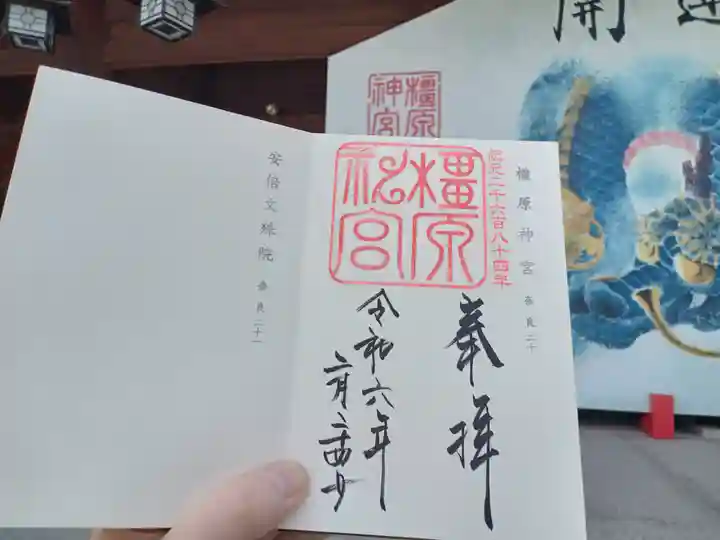 開運
橿原
神宮
皇紀二千六百八十四年
橿原神宮
奈良二十
橿原
神宮
奉拝
令和六年
安倍文殊院
奈良二十一